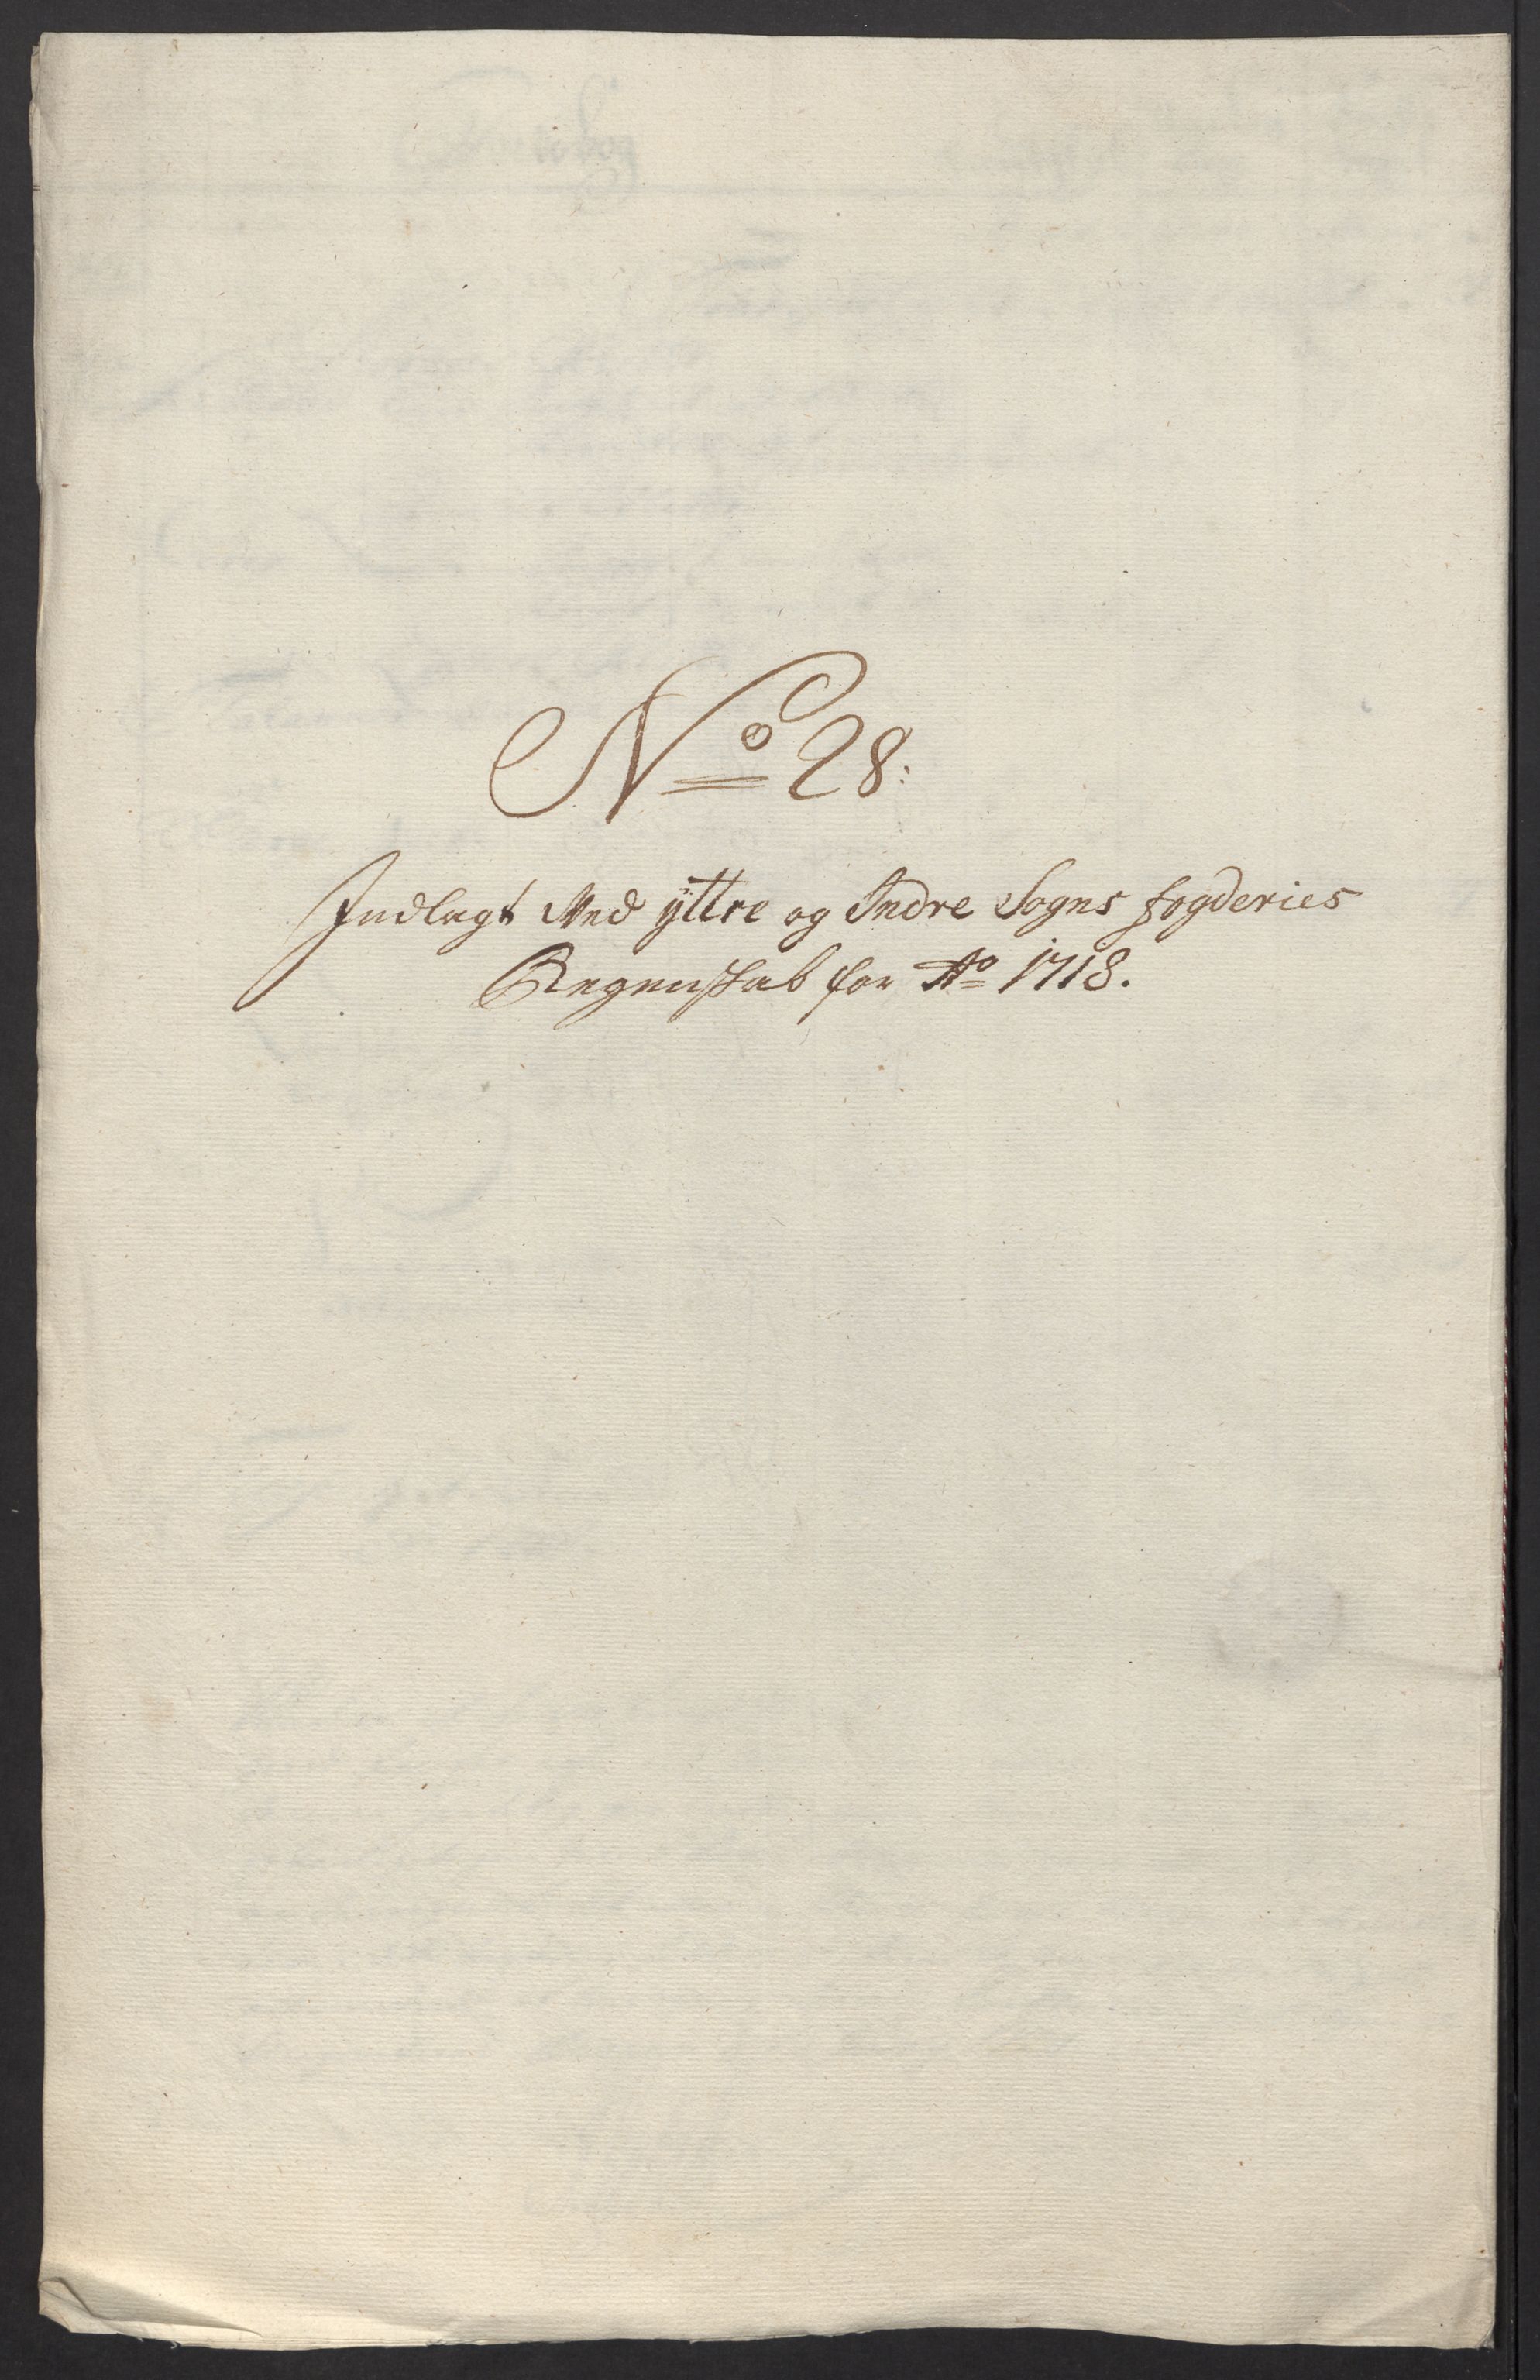 No 28:
Indlagt Med yttre og Indre Sogns fogderies
Regenskab for Ao 1718.